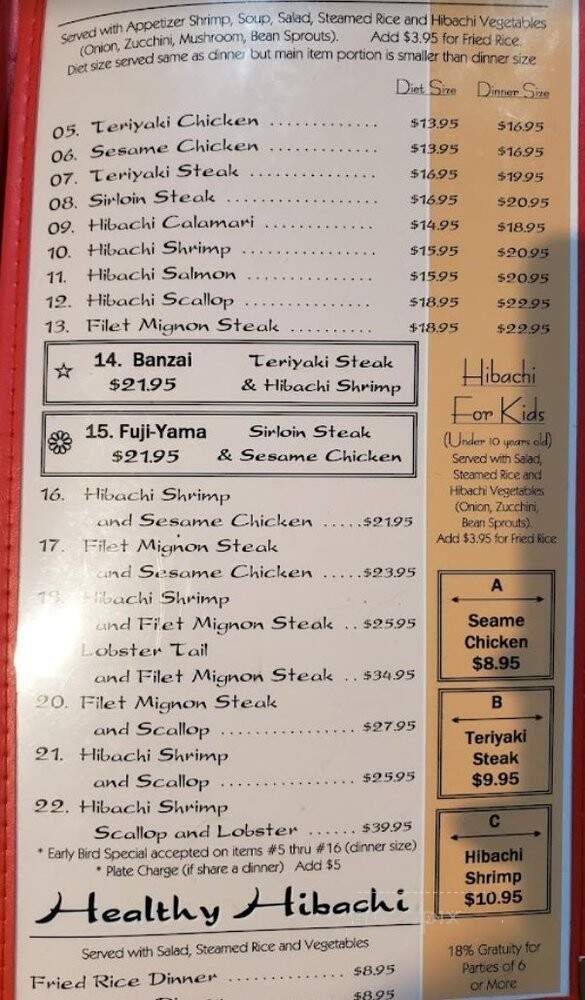 Served with Appetizer Shrimp, Soup, Salad, Steamed Rice and Hibachi Vegetables
(Onion, Zucchini, Mushroom, Bean Sprouts). Add $3.95 for Fried Rice.
Diet size served same as dinner but main item portion is smaller than dinner size
Diet Size Dinner Size
05. Teriyaki Chicken ............. $13.95 $16.95
06. Sesame Chicken ............. $13.95 $16.95
07. Teriyaki Steak ............... $16.95 $19.95
08. Sirloin Steak .................. $16.95 $20.95
09. Hibachi Calamari ............. $14.95 $18.95
10. Hibachi Shrimp ................ $15.95 $20.95
11. Hibachi Salmon ............... $15.95 $20.95
12. Hibachi Scallop ............... $18.95 $22.95
13. Filet Mignon Steak .......... $18.95 $22.95
14. Banzai Teriyaki Steak
$21.95 & Hibachi Shrimp
15. Fuji-Yama Sirloin Steak
$21.95 & Sesame Chicken
16. Hibachi Shrimp
and Sesame Chicken .....$21.95
17. Filet Mignon Steak
and Sesame Chicken .....$23.95
Hibachi Shrimp
and Filet Mignon Steak .. $25.95
Lobster Tail
and Filet Mignon Steak .. $34.95
20. Filet Mignon Steak
and Scallop ................ $27.95
21. Hibachi Shrimp
and Scallop ................ $25.95
22. Hibachi Shrimp
Scallop and Lobster ...... $39.95
* Early Bird Special accepted on items #5 thru #16 (dinner size)
* Plate Charge (if share a dinner) Add $5
Hibachi
For Kids
(Under 10 years old)
Served with Salad,
Steamed Rice and
Hibachi Vegetables
(Onion, Zucchini,
Bean Sprouts).
Add $3.95 for Fried Rice
A
Seame
Chicken
$8.95
B
Teriyaki
Steak
$9.95
C
Hibachi
Shrimp
$10.95
18% Gratuity for
Parties of 6
or More
Healthy Hibachi
Served with Salad, Steamed Rice and Vegetables
Fried Rice Dinner ................ $8.95
$8.95